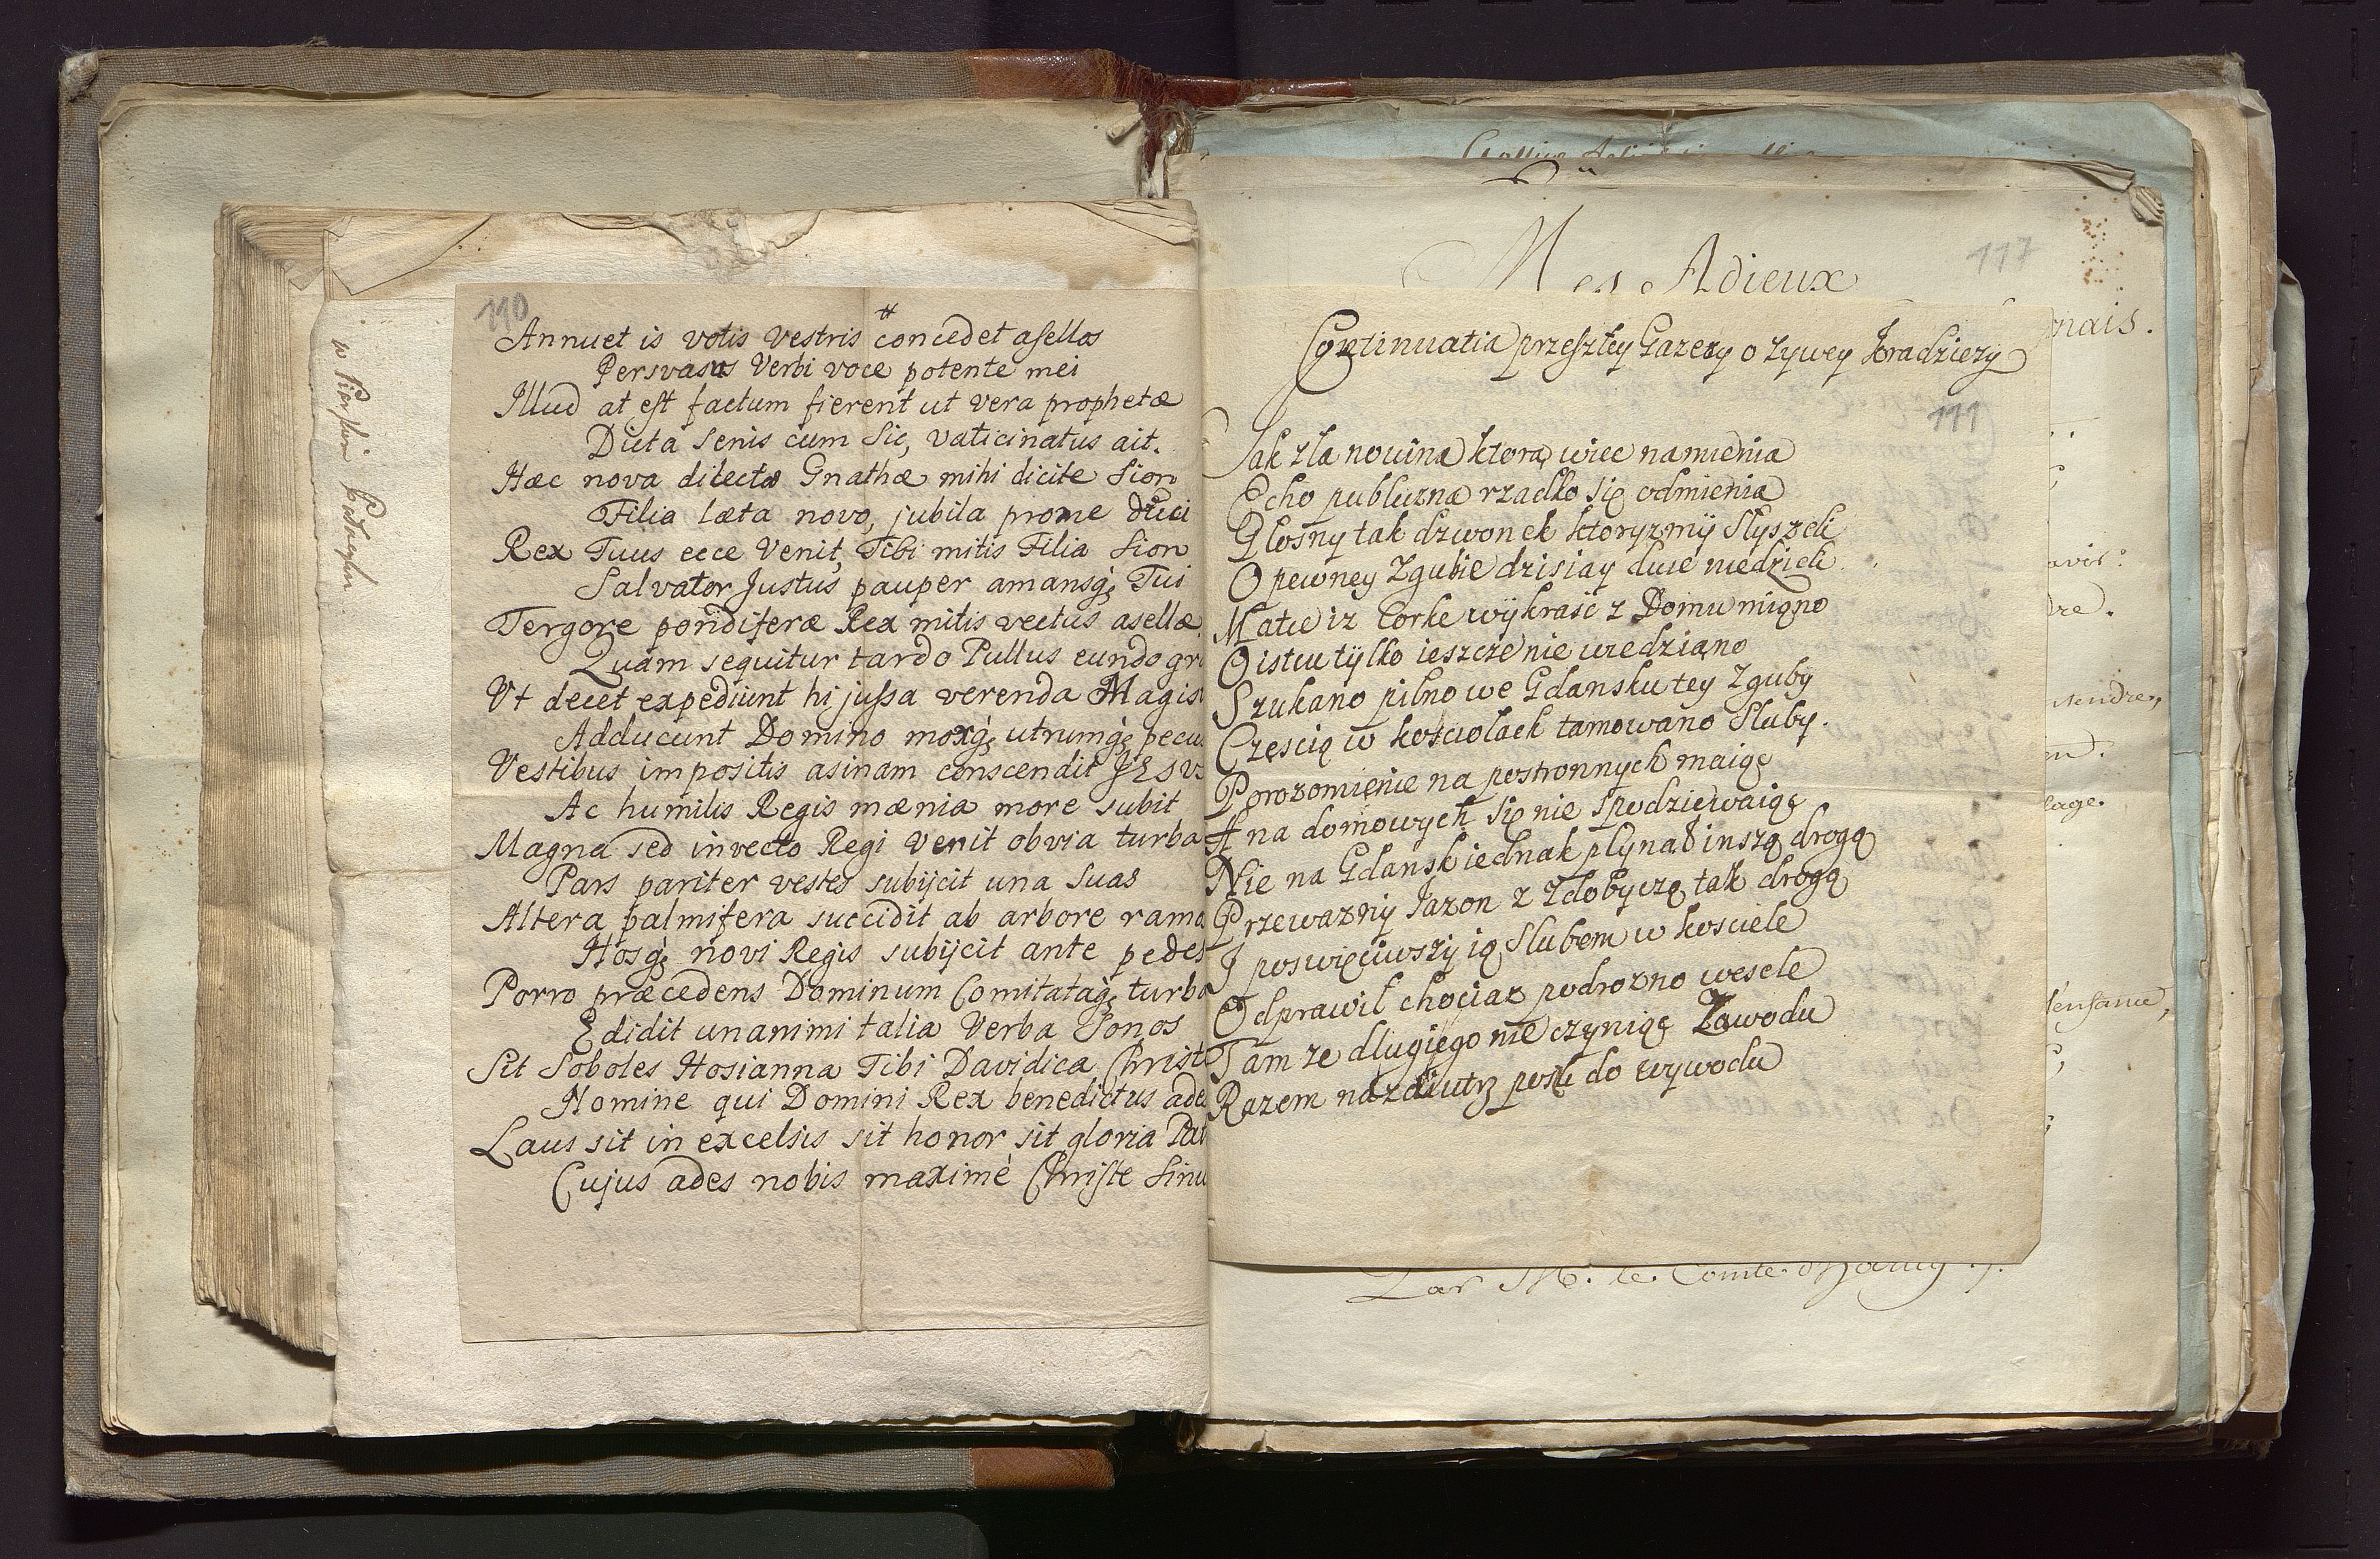 110
Annuet is votis vestris concedet asellos
Persvasus Verbi voce potente mei
Illud at est factum fierent ut vera prophetæ
Dicta Senis cum Sic, vaticinatus ait.
Hæc nova dilectæ Gnathæ mihi dicite Sion
Filia læta novo, jubila prome duci
Rex Tuus ecce Venit, Tibi mitis Filia Sion
Salvator Justus pauper amansq; Tui
Tergore pondiferæ Rex mitis vectus asellæ
Quam sequitur tardo Pullus eundo gr
Vt decet expediunt hi jussa verenda Magis
Adducunt Domino moxq; utrumq; pecu
Vestibus impositis asinam conscendit JESVS
Ac humilis Regis mænia more subit
Magna sed invecto Regi Venit obvia turba
Pars pariter vestes subijcit una Suas
Altera palmifera succidit ab arbore ramo
Hosq; novi Regis subijcit ante pedes
Porro præcedens Dominum Comitataq; turba
Edidit unanimi talia Verba Sonos
Sit Soboles Hosianna Tibi Davidica Christ
Nomine qui Domini Rex benedictus ade
Laus sit in excelsis sit honor sit gloria Pat
Cujus ades nobis maximè Christe Sinu
117
Mes Adieux
Continuatia przeszłey Gazety o żywey kradzieży
111
Jak zła nowina ktorą wiec namienia
Echo publiczna rzadko się odmienia
Głosny tak dzwonek ktoryzmÿ Słyszeli
O pewney Zgubie dzisiay dwie niedzieli
Matce iz Corke wÿkraść z Domu miano
O istcu tÿlko ieszcze nie wiedziano
Szukano pilno we Gdansku tey Zguby
Częscią w kosciołach tamowano Sluby.
Porozomienie na postronnych maiąc
A na domowych się nie spodziewaiąc
Nie na Gdansk iednak płynął inszą drogą
Przewazny Jazon z Zdobyczą tak drogą
I poswięciwszy ią Slubem w kosciele
Odprawił chociaz podrozno wesele
Tam ze długiego nie czyniąc Zawodu
Razem nazaiutrz poszli do wywodu
nais.
avis:
dre.
lage.
Par M. le Comte